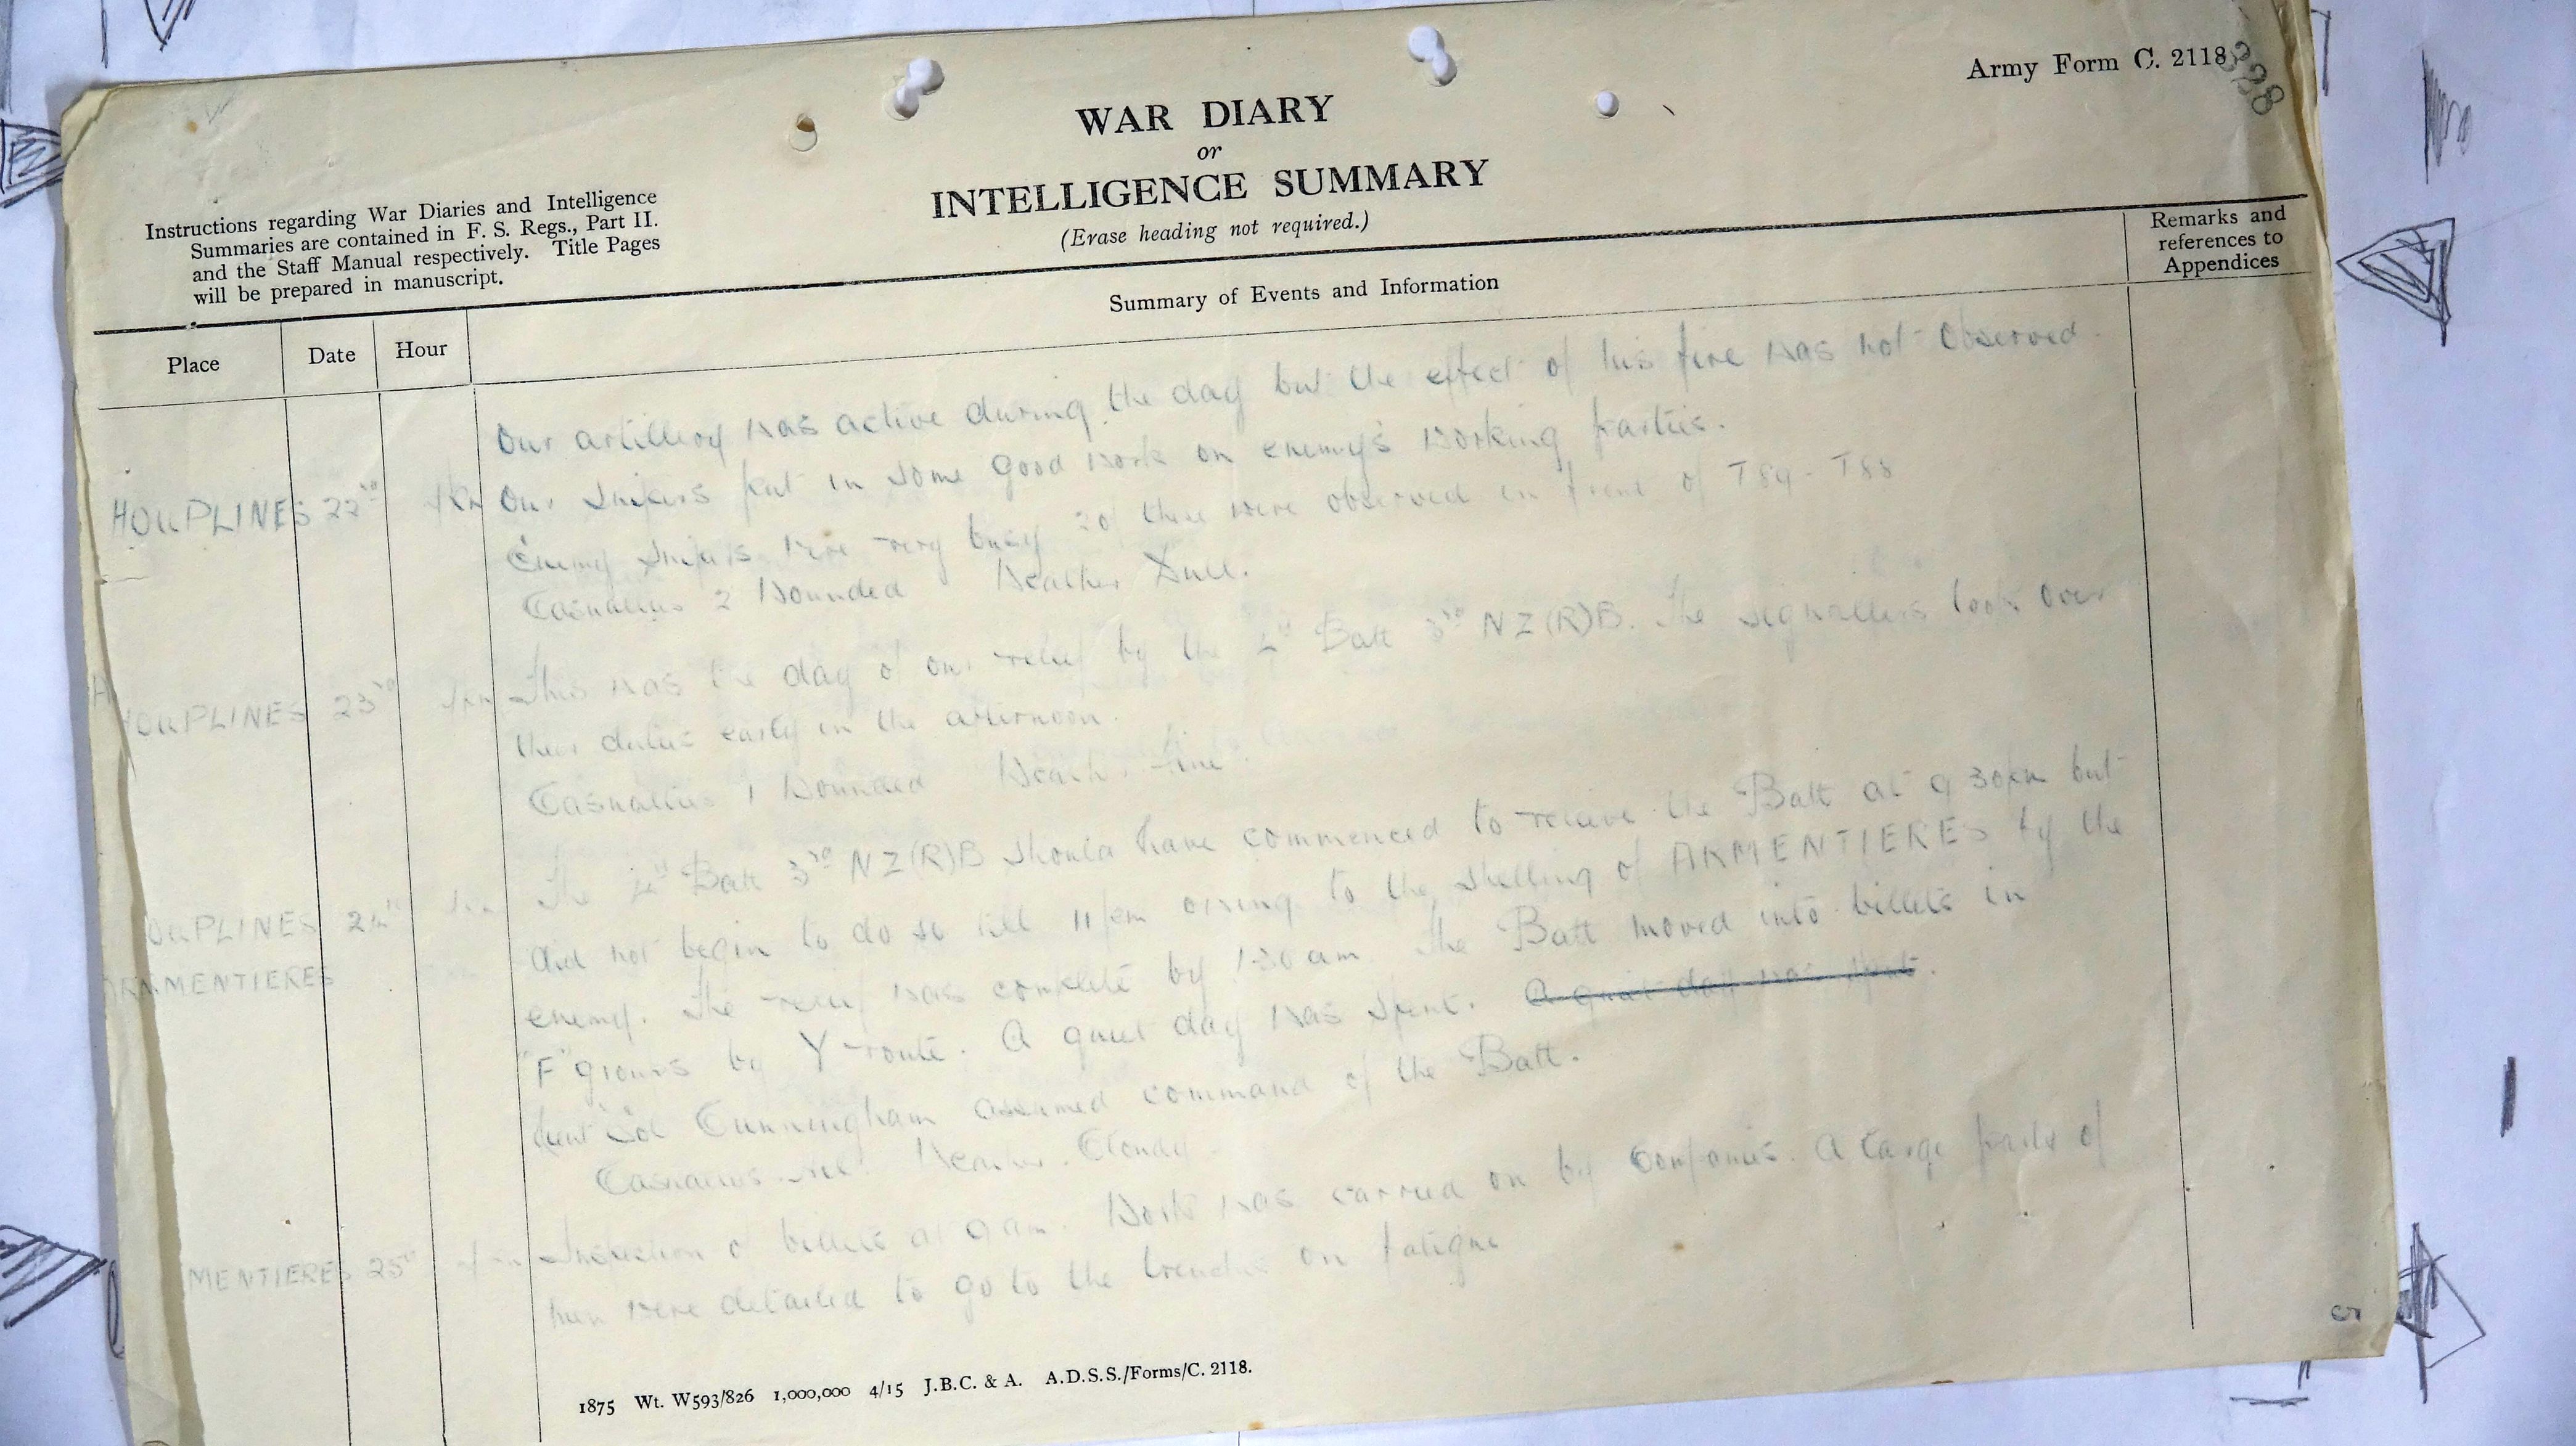 Army Form C. 2118
338
WAR DIARY
or
INTELLIGENCE SUMMARY
(Erase heading not required.)
Instructions regarding War Diaries and Intelligence
Summaries are contained in F. S. Regs., Part II.
and the Staff Manual respectively. Title Pages
will be prepared in manuscript.
Remarks and
references to
Appendices
Summary of Events and Information
Place Date Hour
Our artillery was active during the day but the effect of his fire was not observed.
HOUPLINES 22nd Our snipers put in some good work on enemy's working parties.
Enemy snipers were very busy 2 of these were observed in front of T84 - T88
Casualties 2 Wounded Weather Dull.
HOUPLINES 23rd This was the day of our relief by the 4th Batt 3rd NZ(R)B. The signallers took over
their duties early in the afternoon.
Casualties 1 Wounded Weath. fine.
OUPLINES 24th The 4th Batt 3rd NZ(R)B should have commenced to relieve the Batt at 9 30pm but
did not begin to do so till 11pm owing to the shelling of ARMENTIERES by the
ARMENTIERES enemy. The relief was complete by 1-30 am. The Batt moved into billets in
"F" groups by Y route. A quiet day was spent. A quiet day was spent.
Lieut Col Cunningham assumed command of the Batt.
Casualties nil. Weather. Cloudy
MENTIERES 25th Inspection of billets at 9 am. Work was carried on by Companies. A large party of
men were detailed to go to the trenches on fatigue
1875 Wt. W593/826 1,000,000 4/15 J.B.C. & A. A.D.S.S./Forms/C. 2118.